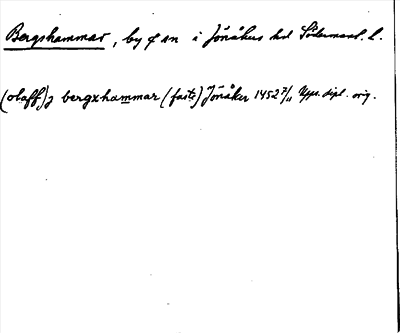 Bergshammar, by i Jönåkers hd Södermanl. l.
(olaff) j bergxhammar (faste) Jönåker 1452 7/11 Upps. dipl. orig.